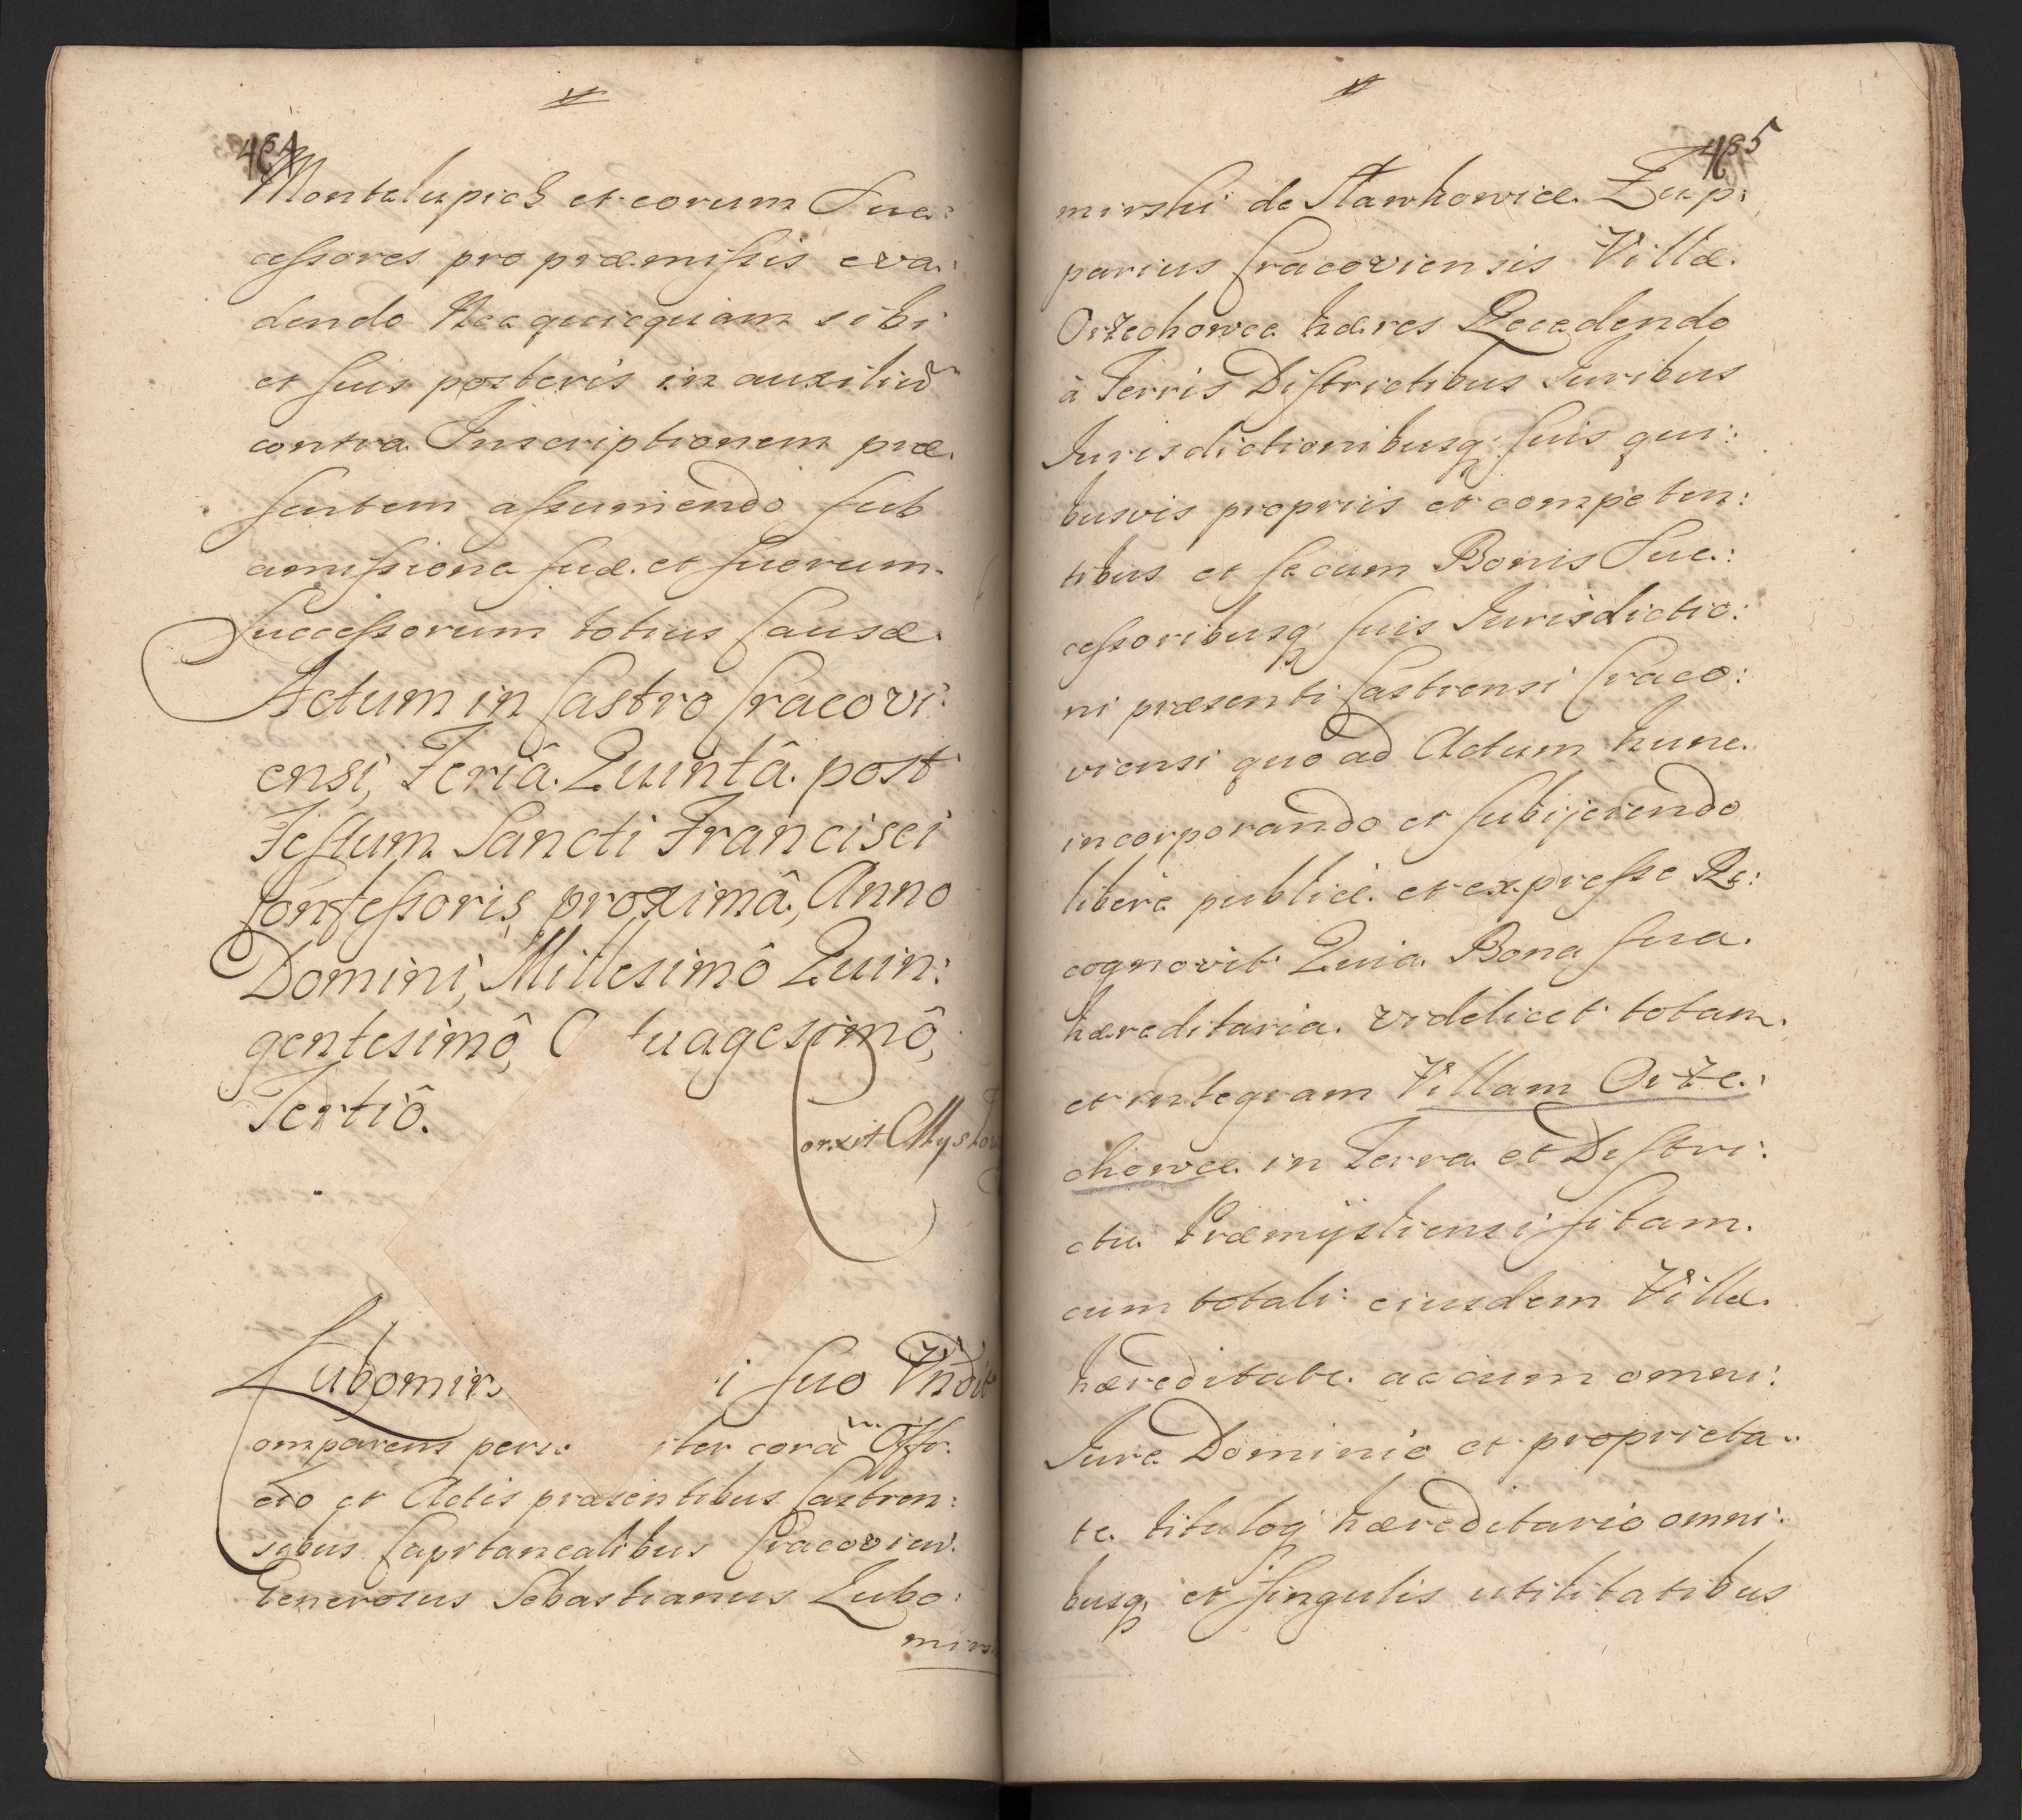 484
Montelupios et eorum Suc:
cessores pro præmissis eva:
dendo Nec quicquam sibi
et suis posteris in auxiliū
contra Inscriptionem præ
sentem assumendo sub
amissione suæ et suorum
Successorum totius Causæ.
Actum in Castro Cracovi:
ensi, Feriâ Quintâ post
Festum Sancti Francisci
Confessoris proximâ, Anno
Domini, Millesimô Quin:
gentesimô, O tuagesimô,
Tertiô.
orxit
Lubomirs i suo Vndit
omparens perso iter corā Offi
cio et Actis præsentibus Castren:
sibus Capitanealibus Cracovien.
Generosus Sebastianus Lubo:
mirs
485
mirski de Slawkowice Zup:
parius Cracoviensis Villæ
Orzechowce hæres Recedendo
à Terris Districtibus Iuribus
Iurisdictionibusq; suis qui:
busvis propriis et competen:
tibus et se cum Bonis Suc:
cessoribusq; suis Iurisdictio:
ni præsenti Castrensi Craco:
viensi quo ad Actum hunc
incorporando et subijciendo
liberè publicè et expresse Re:
cognovit Quia Bona sua
hæreditaria videlicet totam
et integram Villam Orze:
chowce in Terra et Distri:
ctu Præmysliensi sitam
cum totali eiusdem Villæ
hæreditate ac cum omni:
Iure Dominio et proprieta:
te tituloq; hæreditario omni:
busq; et singulis utilitatibus